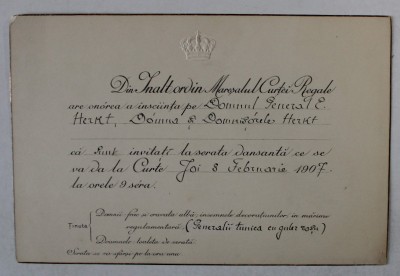 Din Inalt ordin Mareșalul Curței Regale
are onórea a însciința pe Domnul General E.
Herkt, Dómna & Domnișórele Herkt
că sunt invitați la serata dansantă ce se
va da la Curte Joi 8 Februarie 1907.
la orele 9 séra.
Domnii frac și cravata albă; însemnele decorațiunilor în mărime
Ținuta regulamentară (Generalii tunica cu guler roșu)
Dómnele toaleta de serată
Serata se va sfârși pe la ora una